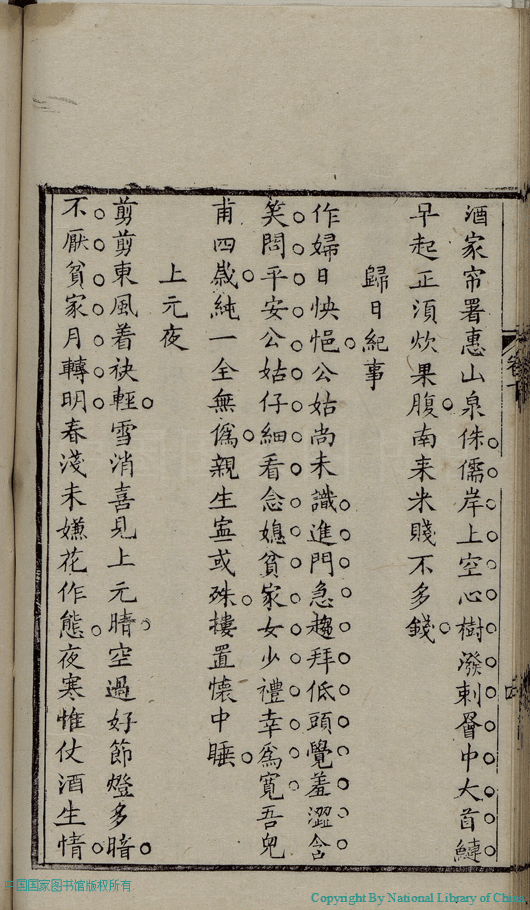 酒家帘署惠山泉侏儒岸上空心樹潑剌罾中大首鰱
早起正須炊果腹南来米賤不多錢
歸日紀事
作婦日怏悒公姑尚未識進門急趨拜低頭覺羞澀含
笑問平安公姑仔細看念媳貧家女少禮幸爲寬吾兒
甫四歲純一全無僞親生寍或殊摟置懷中睡
上元夜
剪剪東風着袂輕雪消喜見上元晴空過好節燈多暗
不厭貧家月轉明春淺未嫌花作態夜寒惟仗酒生情
卷下
四
中国国家图书馆版权所有
Copyright By National Library of China